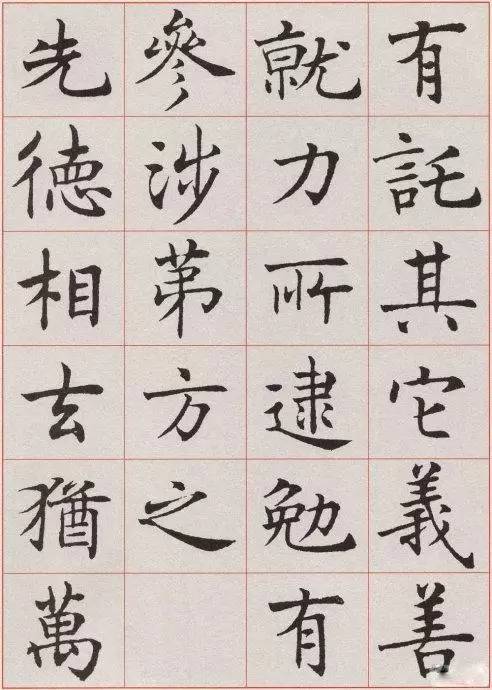 有託其它義善
就力所逮勉有
參涉苐方之
先德相去猶萬